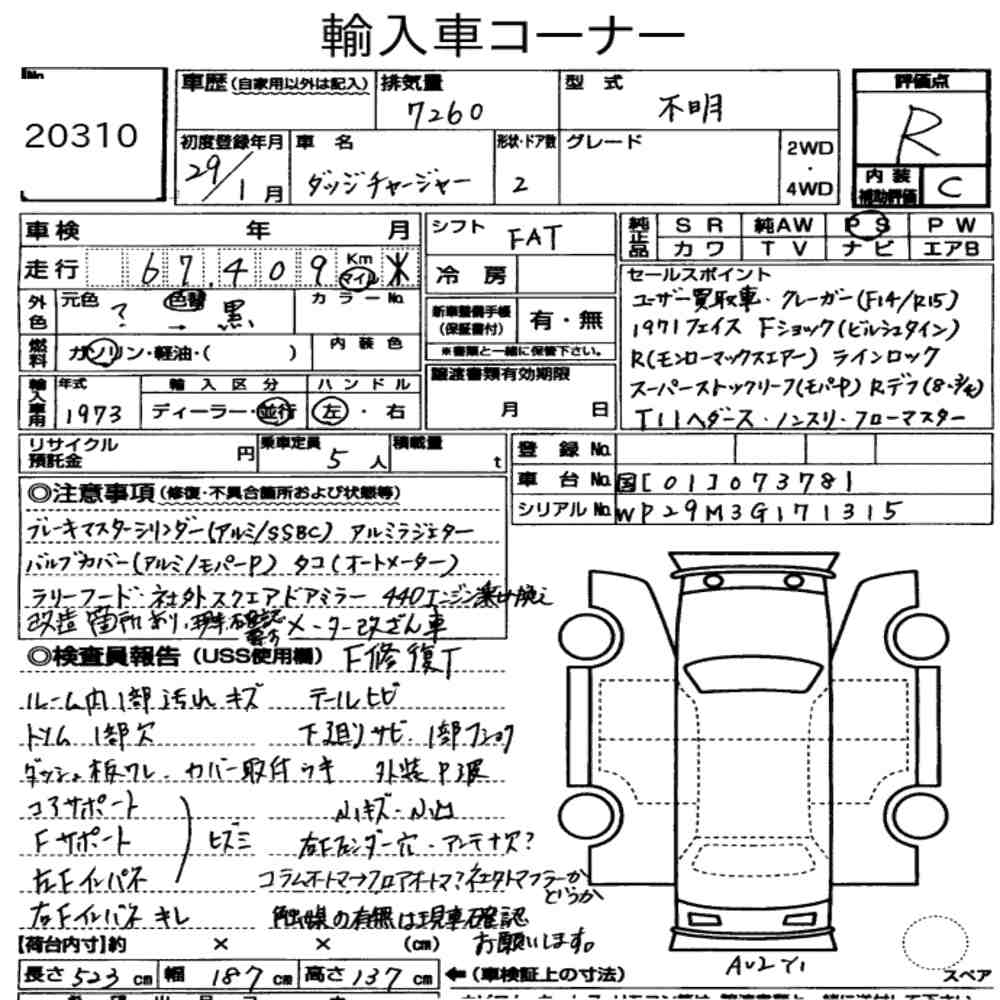 輸入車コーナー
No
20310
車歴(自家用以外は記入) 排気量 7260 型式 不明
評価点 R
初度登録年月 29/1月 車名 ダッジチャージャー 形状・ドア数 2 グレード 2WD・4WD
内装補助評価 C
車検 年 月
シフト FAT
純正品 SR 純AW PS PW
カワ TV ナビ エアB
走行 67,409 Km マイル
冷房
外色 元色 ? → 色替 黒 カラーNo.
新車整備手帳(保証書付) 有・無
※書類と一緒に保管下さい。
燃料 ガソリン・軽油・( ) 内装色
セールスポイント
ユーザー買取車・クレーガー(F14/R15)
1971フェイス Fショック(ビルシュタイン)
R(モンローマックスエアー) ラインロック
スーパーストックリーフ(モパP) Rデフ(8・3/4)
TTIヘダース・ノンスリ・フローマスター
輸入車用 年式 1973 輸入区分 ディーラー・並行 ハンドル 左・右
譲渡書類有効期限
月 日
リサイクル預託金 円 乗車定員 5人 積載量 t
登録No.
車台No. 国[01]073781
シリアルNo. WP29M3G171315
◎注意事項(修復・不具合箇所および状態等)
ブレーキマスターシリンダー(アルミ/SSBC) アルミラジエター
バルブカバー(アルミ/モパーP) タコ(オートメーター)
ラリーフード・社外スクエアドアミラー 440エンジン乗せ換え
改造箇所あり、現車確認 メーター改ざん車
◎検査員報告(USS使用欄) F修復了
ルーム内1部汚れキズ テールヒビ
トリム1部欠 下廻りサビ・1部フショク
ダッシュ板ワレ・カバー取付ウキ 外装P、波
コアサポート 小キズ・小凹
Fサポート ヒズミ 右Fフェンダー穴・アンテナ欠?
左Fインパネ コラムオートマ→フロアオートマ?
右Fインパネキレ
触媒の有無は現車確認
お願いします。
【荷台内寸】約 × × (cm)
長さ 523 cm 幅 187 cm 高さ 137 cm ←(車検証上の寸法)
スペア